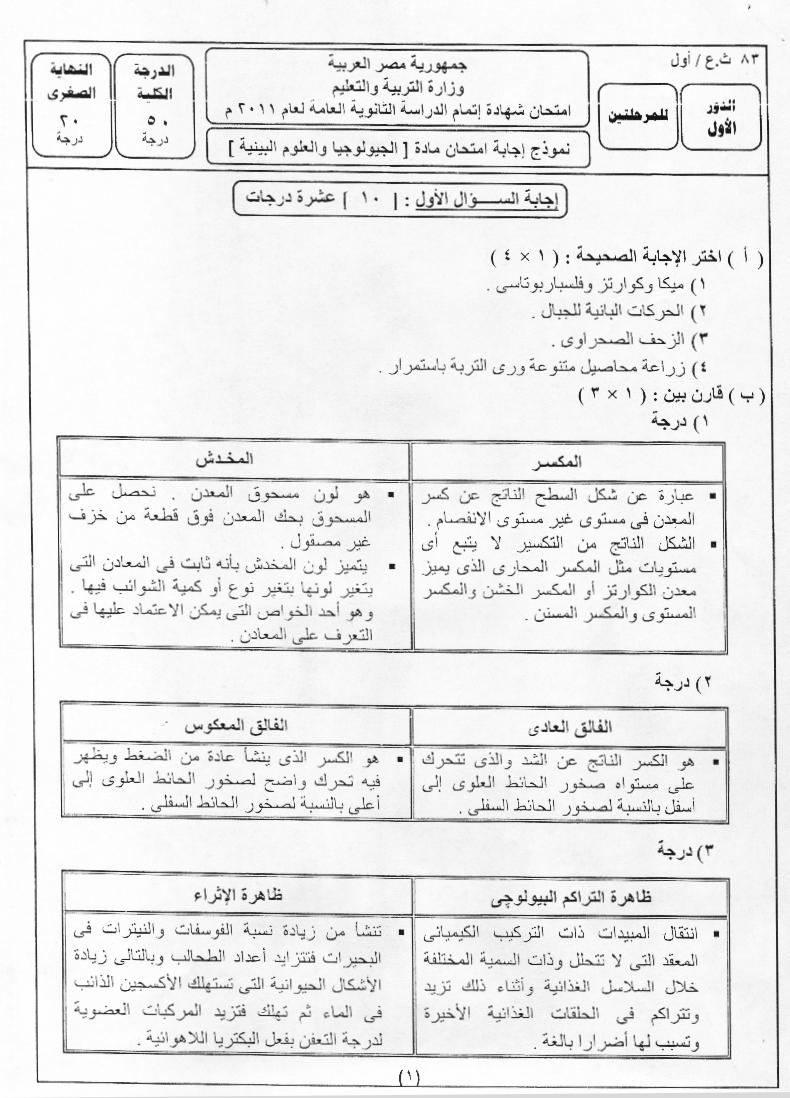 ٨٣ ث.ع / أول
الدور
الأول
للمرحلتين
جمهورية مصر العربية
وزارة التربية والتعليم
امتحان شهادة إتمام الدراسة الثانوية العامة لعام ٢٠١١ م
نموذج إجابة امتحان مادة [ الجيولوجيا والعلوم البيئية ]
الدرجة
الكلية
٥٠
درجة
النهاية
الصغرى
٢٠
درجة
إجابة الســـؤال الأول : [ ١٠ ] عشرة درجات
( أ ) اختر الإجابة الصحيحة : ( ١ × ٤ )
١) ميكا وكوارتز وفلسباربوتاسى .
٢) الحركات البانية للجبال .
٣) الزحف الصحراوى .
٤) زراعة محاصيل متنوعة ورى التربة باستمرار .
( ب ) قارن بين : ( ١ × ٣ )
١) درجة
المكسر
▪ عبارة عن شكل السطح الناتج عن كسر
المعدن فى مستوى غير مستوى الانفصام .
▪ الشكل الناتج من التكسير لا يتبع أى
مستويات مثل المكسر المحارى الذى يميز
معدن الكوارتز أو المكسر الخشن والمكسر
المستوى والمكسر المسنن .
المخدش
▪ هو لون مسحوق المعدن . نحصل على
المسحوق بحك المعدن فوق قطعة من خزف
غير مصقول .
▪ يتميز لون المخدش بأنه ثابت فى المعادن التى
يتغير لونها بتغير نوع أو كمية الشوائب فيها .
وهو أحد الخواص التى يمكن الاعتماد عليها فى
التعرف على المعادن .
٢) درجة
الفالق العادى
▪ هو الكسر الناتج عن الشد والذى تتحرك
على مستواه صخور الحائط العلوى إلى
أسفل بالنسبة لصخور الحائط السفلى .
الفالق المعكوس
▪ هو الكسر الذى ينشأ عادة من الضغط ويظهر
فيه تحرك واضح لصخور الحائط العلوى إلى
أعلى بالنسبة لصخور الحائط السفلى .
٣) درجة
ظاهرة التراكم البيولوچى
▪ انتقال المبيدات ذات التركيب الكيميائى
المعقد التى لا تتحلل وذات السمية المختلفة
خلال السلاسل الغذائية وأثناء ذلك تزيد
وتتراكم فى الحلقات الغذائية الأخيرة
وتسبب لها أضرارا بالغة .
ظاهرة الإثراء
▪ تنشأ من زيادة نسبة الفوسفات والنيترات فى
البحيرات فتتزايد أعداد الطحالب وبالتالى زيادة
الأشكال الحيوانية التى تستهلك الأكسجين الذائب
فى الماء ثم تهلك فتزيد المركبات العضوية
لدرجة التعفن بفعل البكتريا اللاهوائية .
(١)